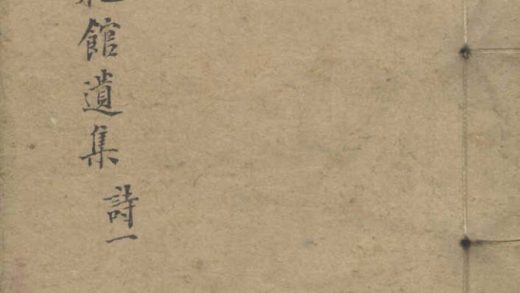 館遺集 詩一